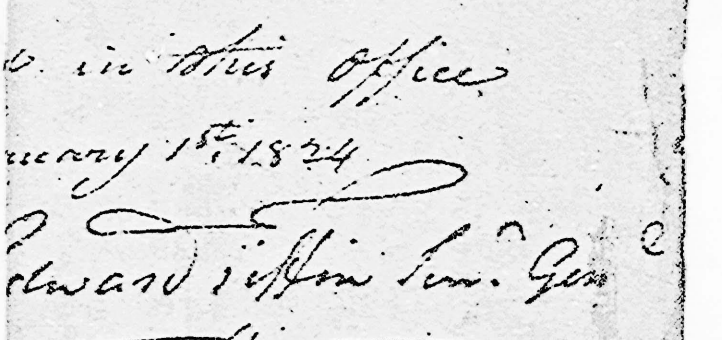 in this office
nuary 1st. 1824
Edward Tiffin Sur. Gen